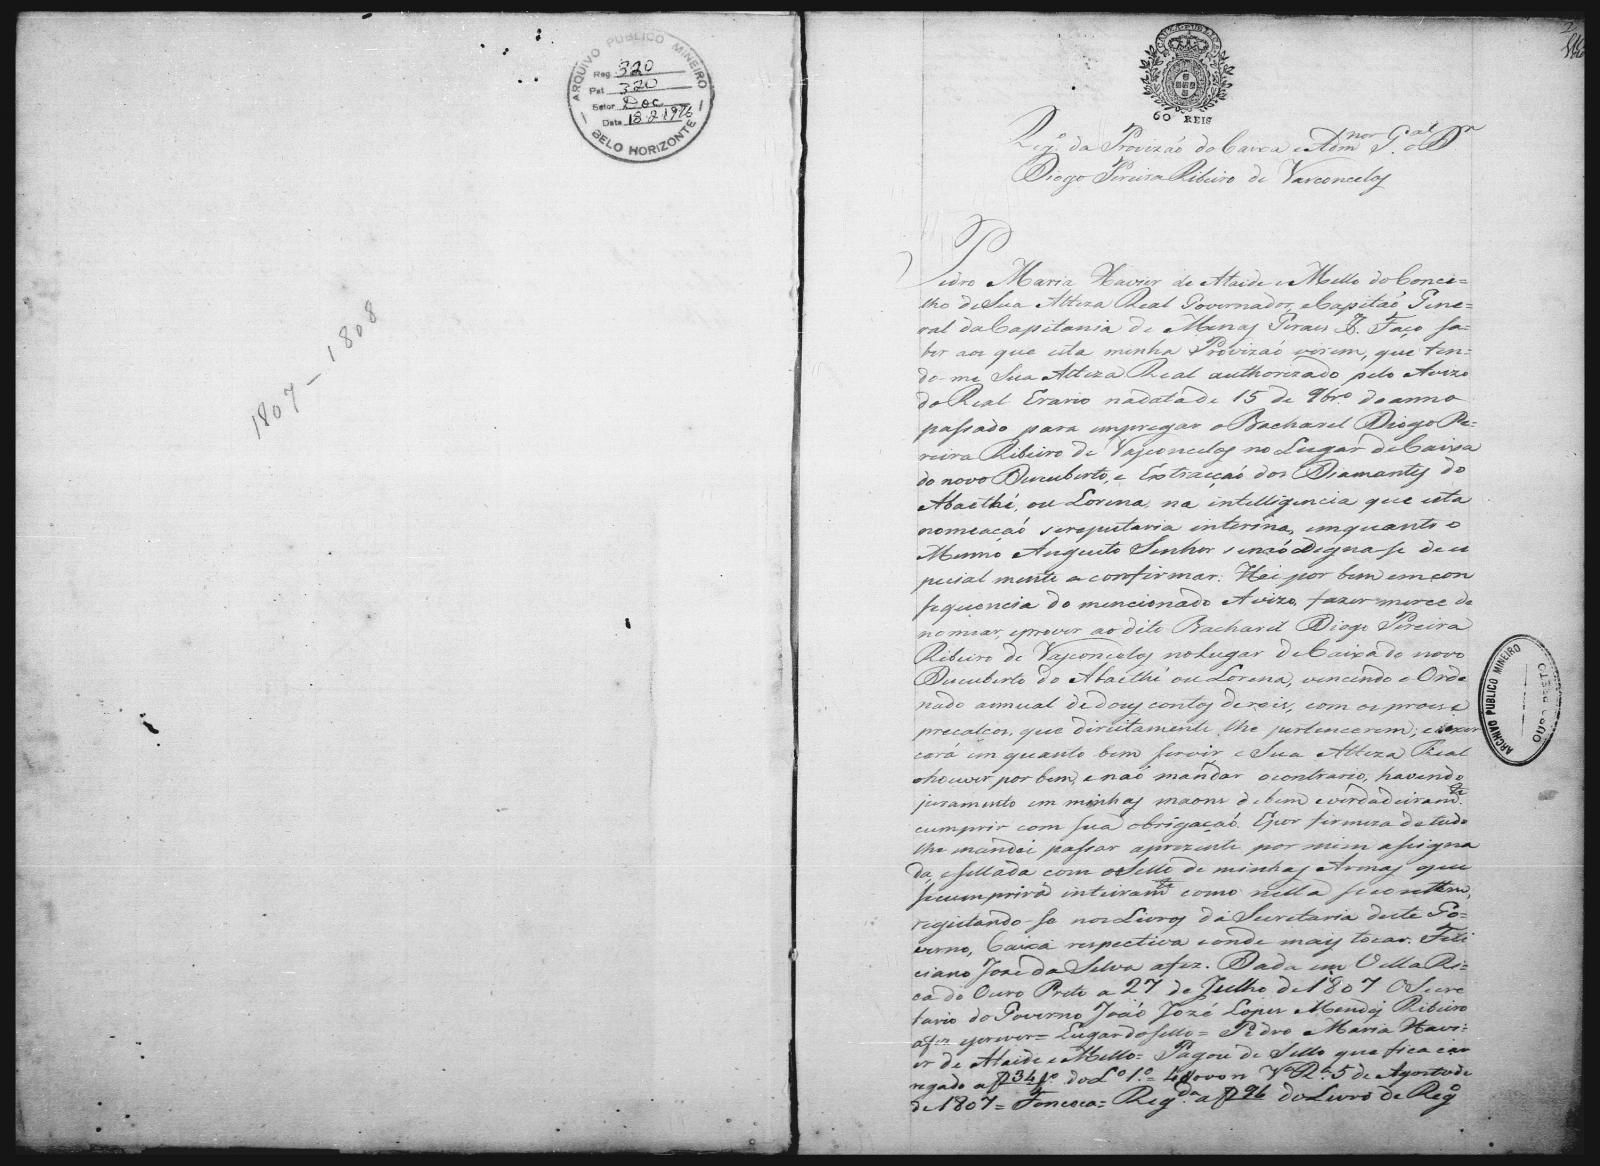 ARQUIVO PUBLICO MINEIRO
Reg. 320
Pat 320
Setor Doc
Data 18-2-1976
BELO HORIZONTE
1807 - 1808
60 REIS
Reg.º da Provizaó do Caixa e Adm.nor G.al o D.r
Diogo Pereira Ribeiro de Vasconcelos
Pedro Maria Xavier de Ataide e Mello do Conce=
lho de Sua Alteza Real Governador, e Capitaó Gene=
ral da Capitania de Minas Geraes &. Faço sa=
ber aos que esta minha Provizaó virem, que ten=
do-me Sua Alteza Real authorizado pelo Avizo
do Real Erario na data de 15 de 9br.º do anno
passado para empregar o Bacharel Diogo Pe=
reira Ribeiro de Vasconcelos no Lugar de Caixa
do novo Descuberto, e Extracçaó dos Diamantes do
Abaethé, ou Lorena, na intelligencia que esta
nomeaçaó se reputaria interina, emquanto o
Mesmo Augusto Senhor senaó dignasse de es
pecial mente a confirmar. Hei por bem em con
sequencia do mencionado Avizo, fazer merce de
nomear, e prover ao dito Bacharel Diogo Pereira
Ribeiro de Vasconcelos no Lugar de Caixa do novo
Descuberto do Abaethé ou Lorena, vencendo o Orde
nado annual de dous contos de reis, com os proes e
precalços, que direitamente lhe pertencerem; e exer
cerá em quanto bem servir e Sua Alteza Real
o houver por bem, e naó mandar o contrario, havendo
juramento em minhas maons de bem e verdadeiram.te
cumprir com sua obrigaçaó. E por firmeza de tudo
lhe mandei passar a prezente por mim assigna
da, e sellada com o Sello de minhas Armas que
se cumprirá inteiram.te como nella se contem,
registando-se nos Livros da Secretaria deste Go=
verno, Caixa respectiva e onde mais tocar. Feli
ciano Jozé da Silva a fez. Dada em Villa Ri=
ca do Ouro Preto a 27 de Julho de 1807 O Secre
tario do Governo Joaó Jozé Lopes Mendes Ribeiro
a fez escrever= Lugar do sello= Pedro Maria Xavi=
er de Ataide e Mello= Pagou de Sello que fica car
regado a f 34 do L.º 1.º= V.ª R.ª 5 de Agosto de
de 1807= Fonceca= Reg.da a f 96 do Livro de Reg.º
ARCHIVO PUBLICO MINEIRO
OURO PRETO